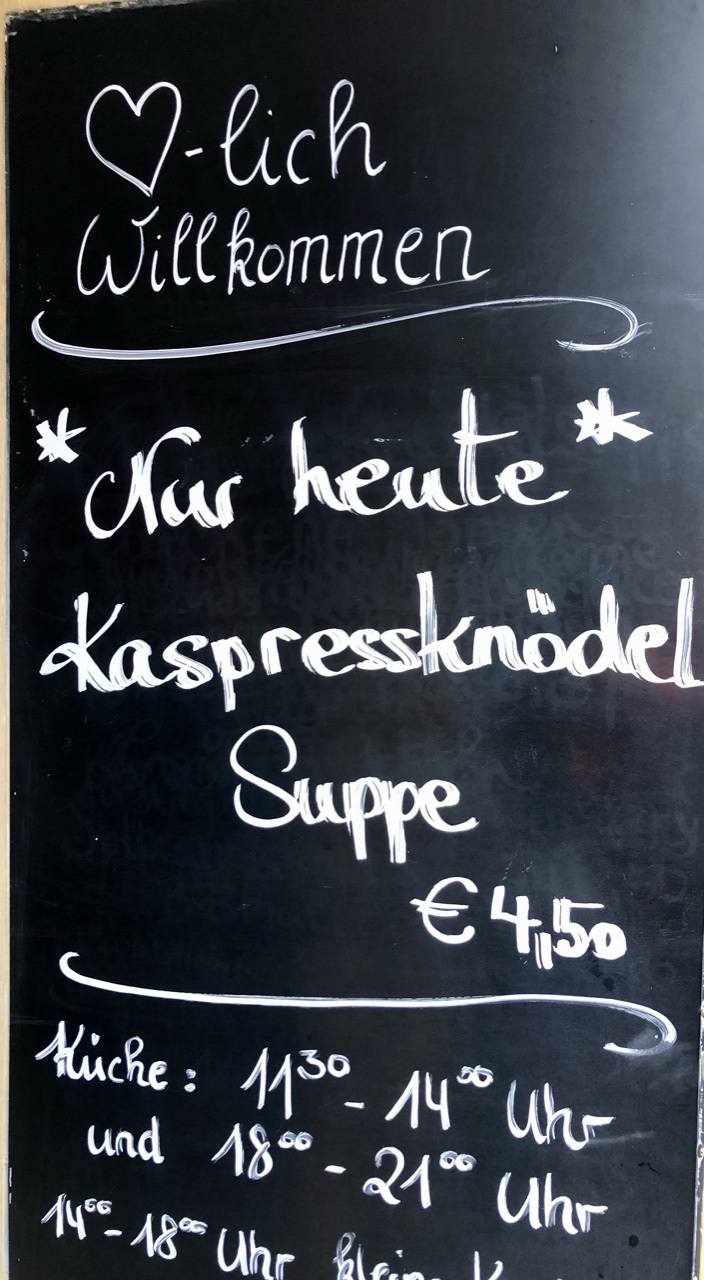 ♡-lich
Willkommen
*Nur heute*
Kaspressknödel
Suppe
€ 4,50
Küche: 11³⁰ - 14⁰⁰ Uhr
und 18⁰⁰ - 21⁰⁰ Uhr
14⁰⁰ - 18⁰⁰ Uhr